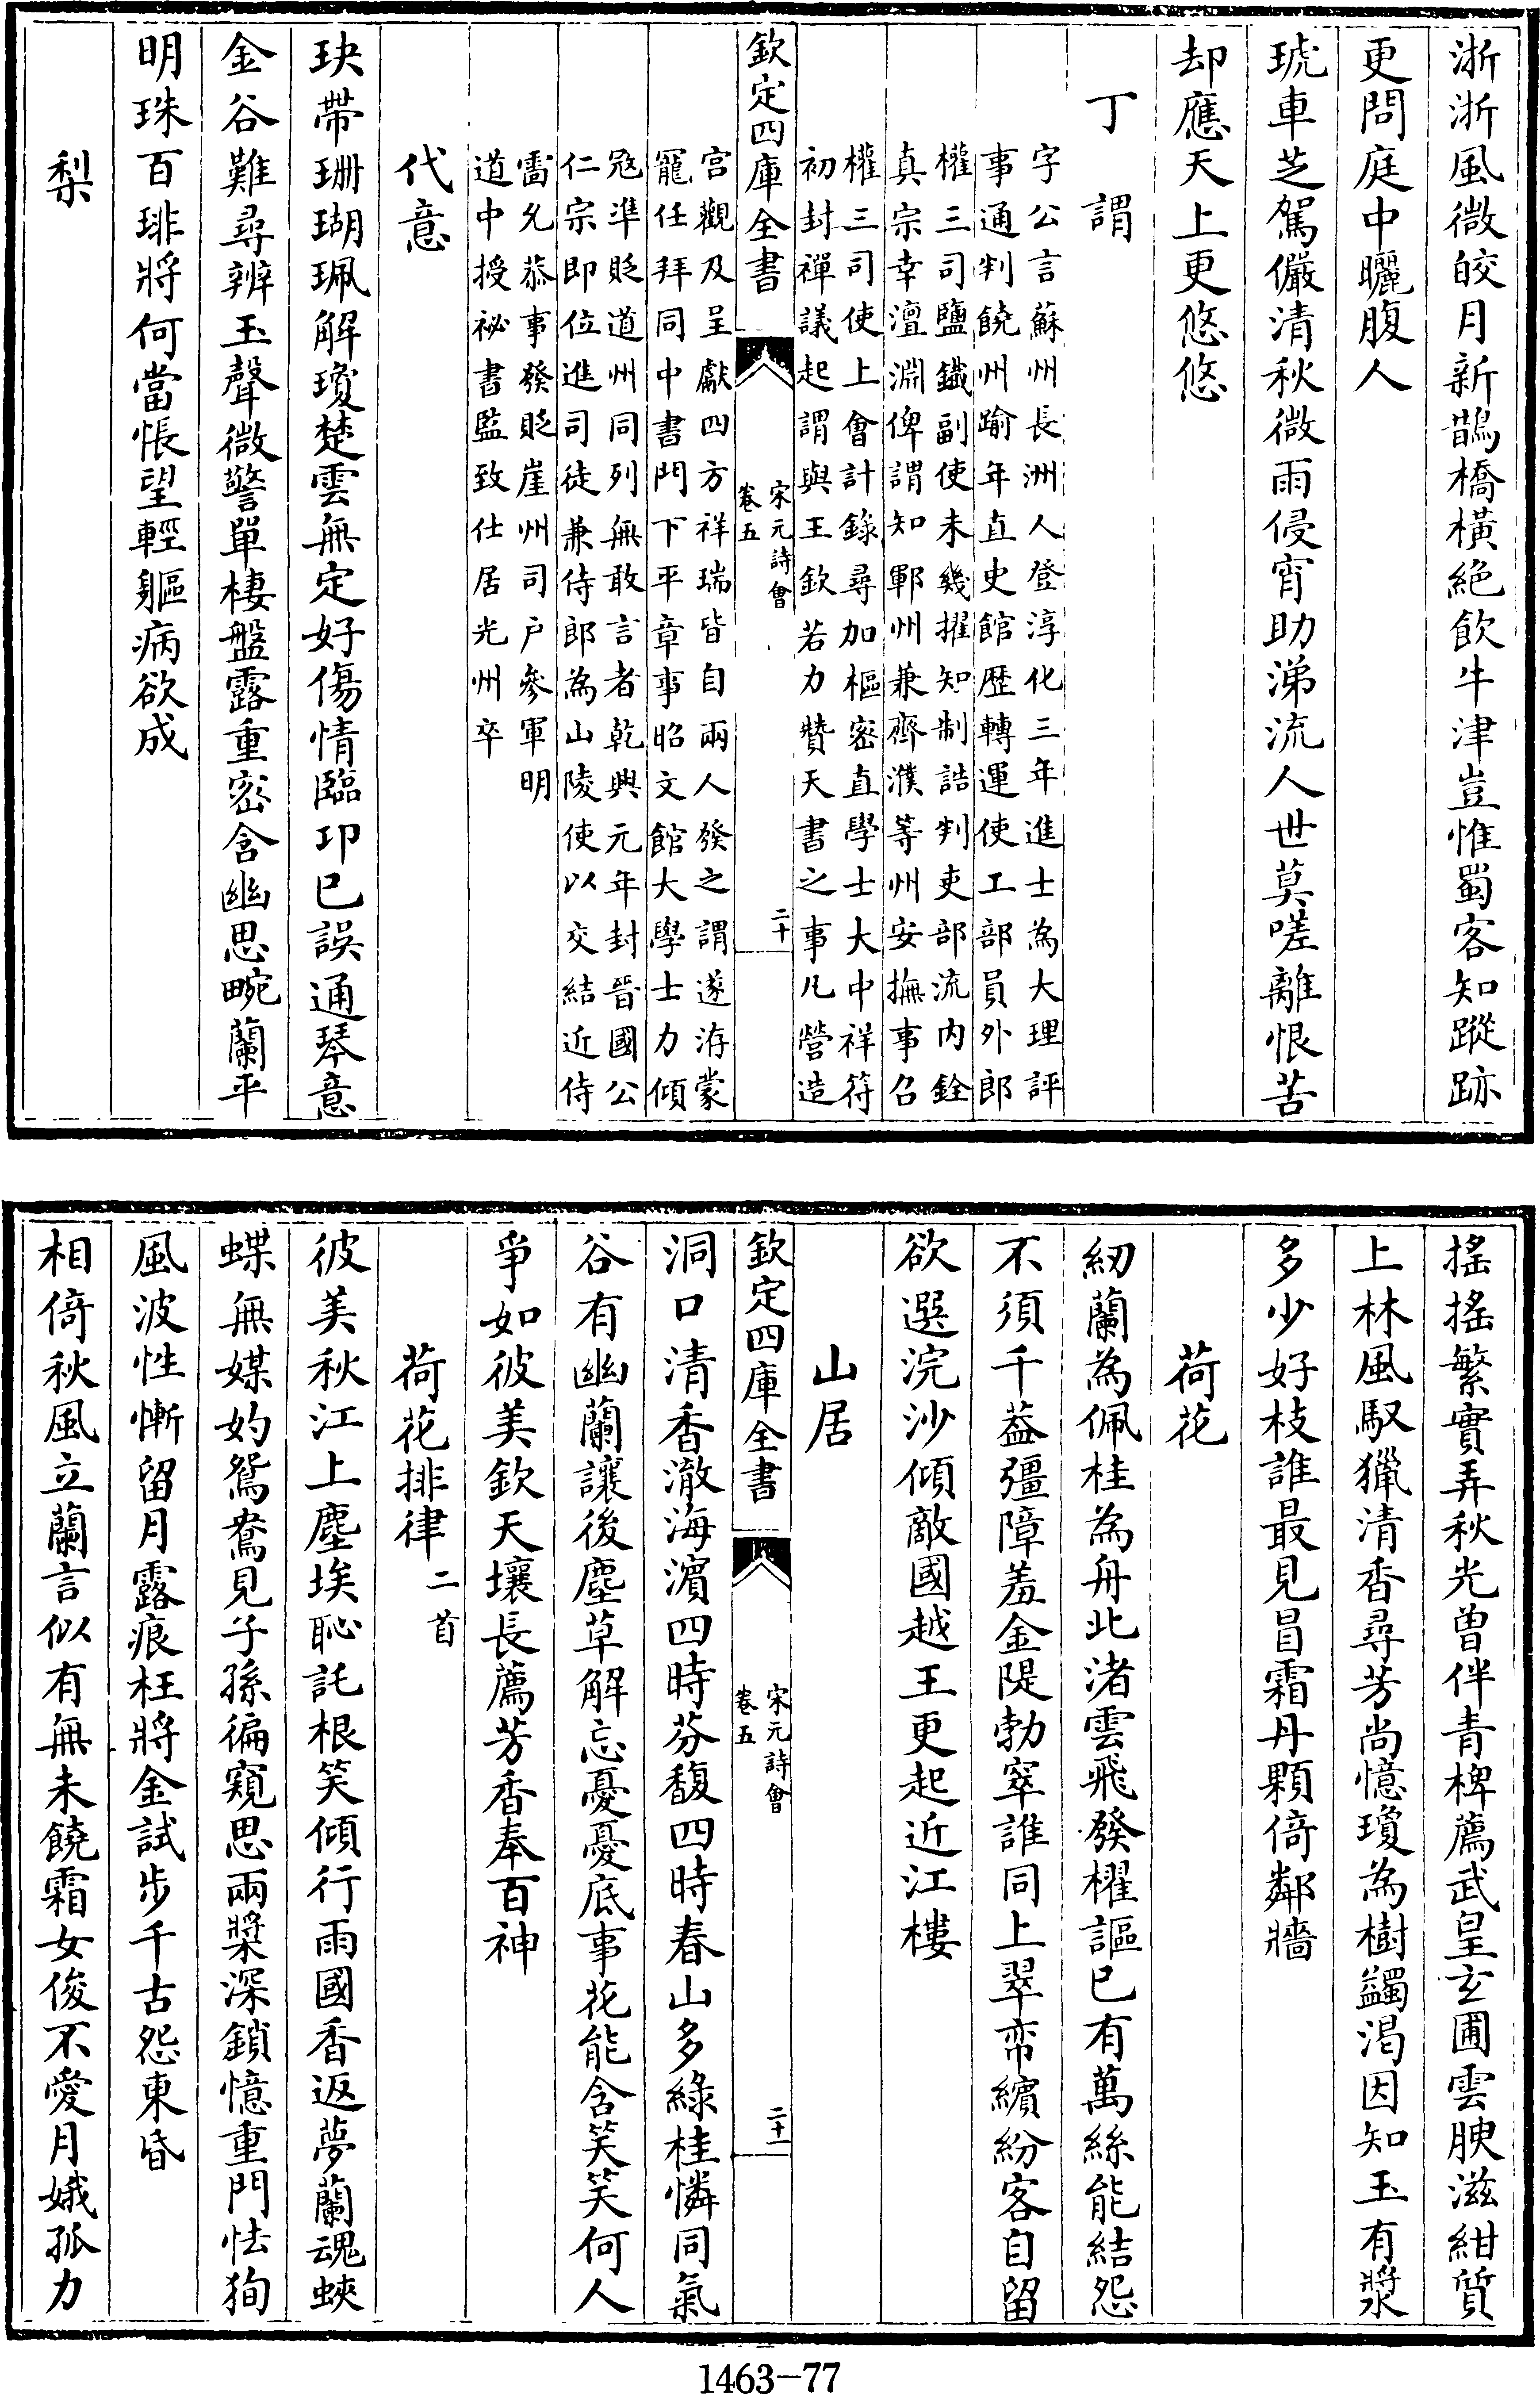 浙浙風微皎月新鵲橋橫絶飲牛津豈惟蜀客知蹤跡
更問庭中曬腹人
琥車芝駕儼清秋微雨侵宵助涕流人世莫嗟離恨苦
却應天上更悠悠
丁謂
字公言蘇州長洲人登淳化三年進士為大理評
事通判饒州踰年直史館歴轉運使工部員外郎
權三司鹽鐵副使未幾擢知制誥判吏部流内銓
真宗幸澶淵俾謂知鄆州兼齊濮等州安撫事召
權三司使上會計錄尋加樞密直學士大中祥符
初封禪議起謂與王欽若力贊天書之事凡營造
欽定四庫全書
宋元詩會
卷五
二十
宫觀及呈獻四方祥瑞皆自兩人發之謂遂洊蒙
寵任拜同中書門下平章事昭文館大學士力傾
冦準貶道州同列無敢言者乾興元年封晉國公
仁宗即位進司徒兼侍郎為山陵使以交結近侍
雷允恭事發貶崖州司戶參軍明
道中授祕書監致仕居光州卒
代意
玦帶珊瑚珮解瓊楚雲無定好傷情臨卭已誤通琴意
金谷難尋辨玉聲微警單棲盤露重密含幽思畹蘭平
明珠百琲將何當悵望輕軀病欲成
梨
摇摇繁實弄秋光曽伴青椑薦武皇玄圃雲腴滋紺質
上林風馭獵清香尋芳尚憶瓊為樹蠲渴因知玉有漿
多少好枝誰最見冒霜丹顆倚鄰牆
荷花
紉蘭為佩桂為舟北渚雲飛發櫂謳已有萬絲能結怨
不須千葢彊障羞金隄勃窣誰同上翠帟繽紛客自留
欲選浣沙傾敵國越王更起近江樓
山居
欽定四庫全書
宋元詩會
卷五
二十一
洞口清香澈海濵四時芬馥四時春山多綠桂憐同氣
谷有幽蘭讓後塵草解忘憂憂底事花能含笑笑何人
爭如彼美欽天壤長薦芳香奉百神
荷花排律二首
彼美秋江上塵埃恥託根笑傾行雨國香返夢蘭魂蛺
蝶無媒妁鴛鴦見子孫徧窺思兩槳深鎖憶重門怯狥
風波性慚留月露痕枉將金試步千古怨東昏
相倚秋風立蘭言似有無未饒霜女俊不愛月娥孤力
1463-77